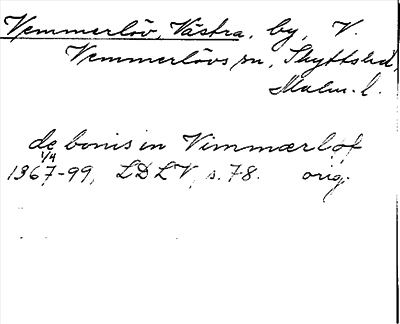 Vemmerlöv, Västra, by, V.
Vemmerlövs sn, Skyttshd,
Malm. l.
de bonis in Vimmærløf
1/4
1367-99, LDLV, s. 78. orig.